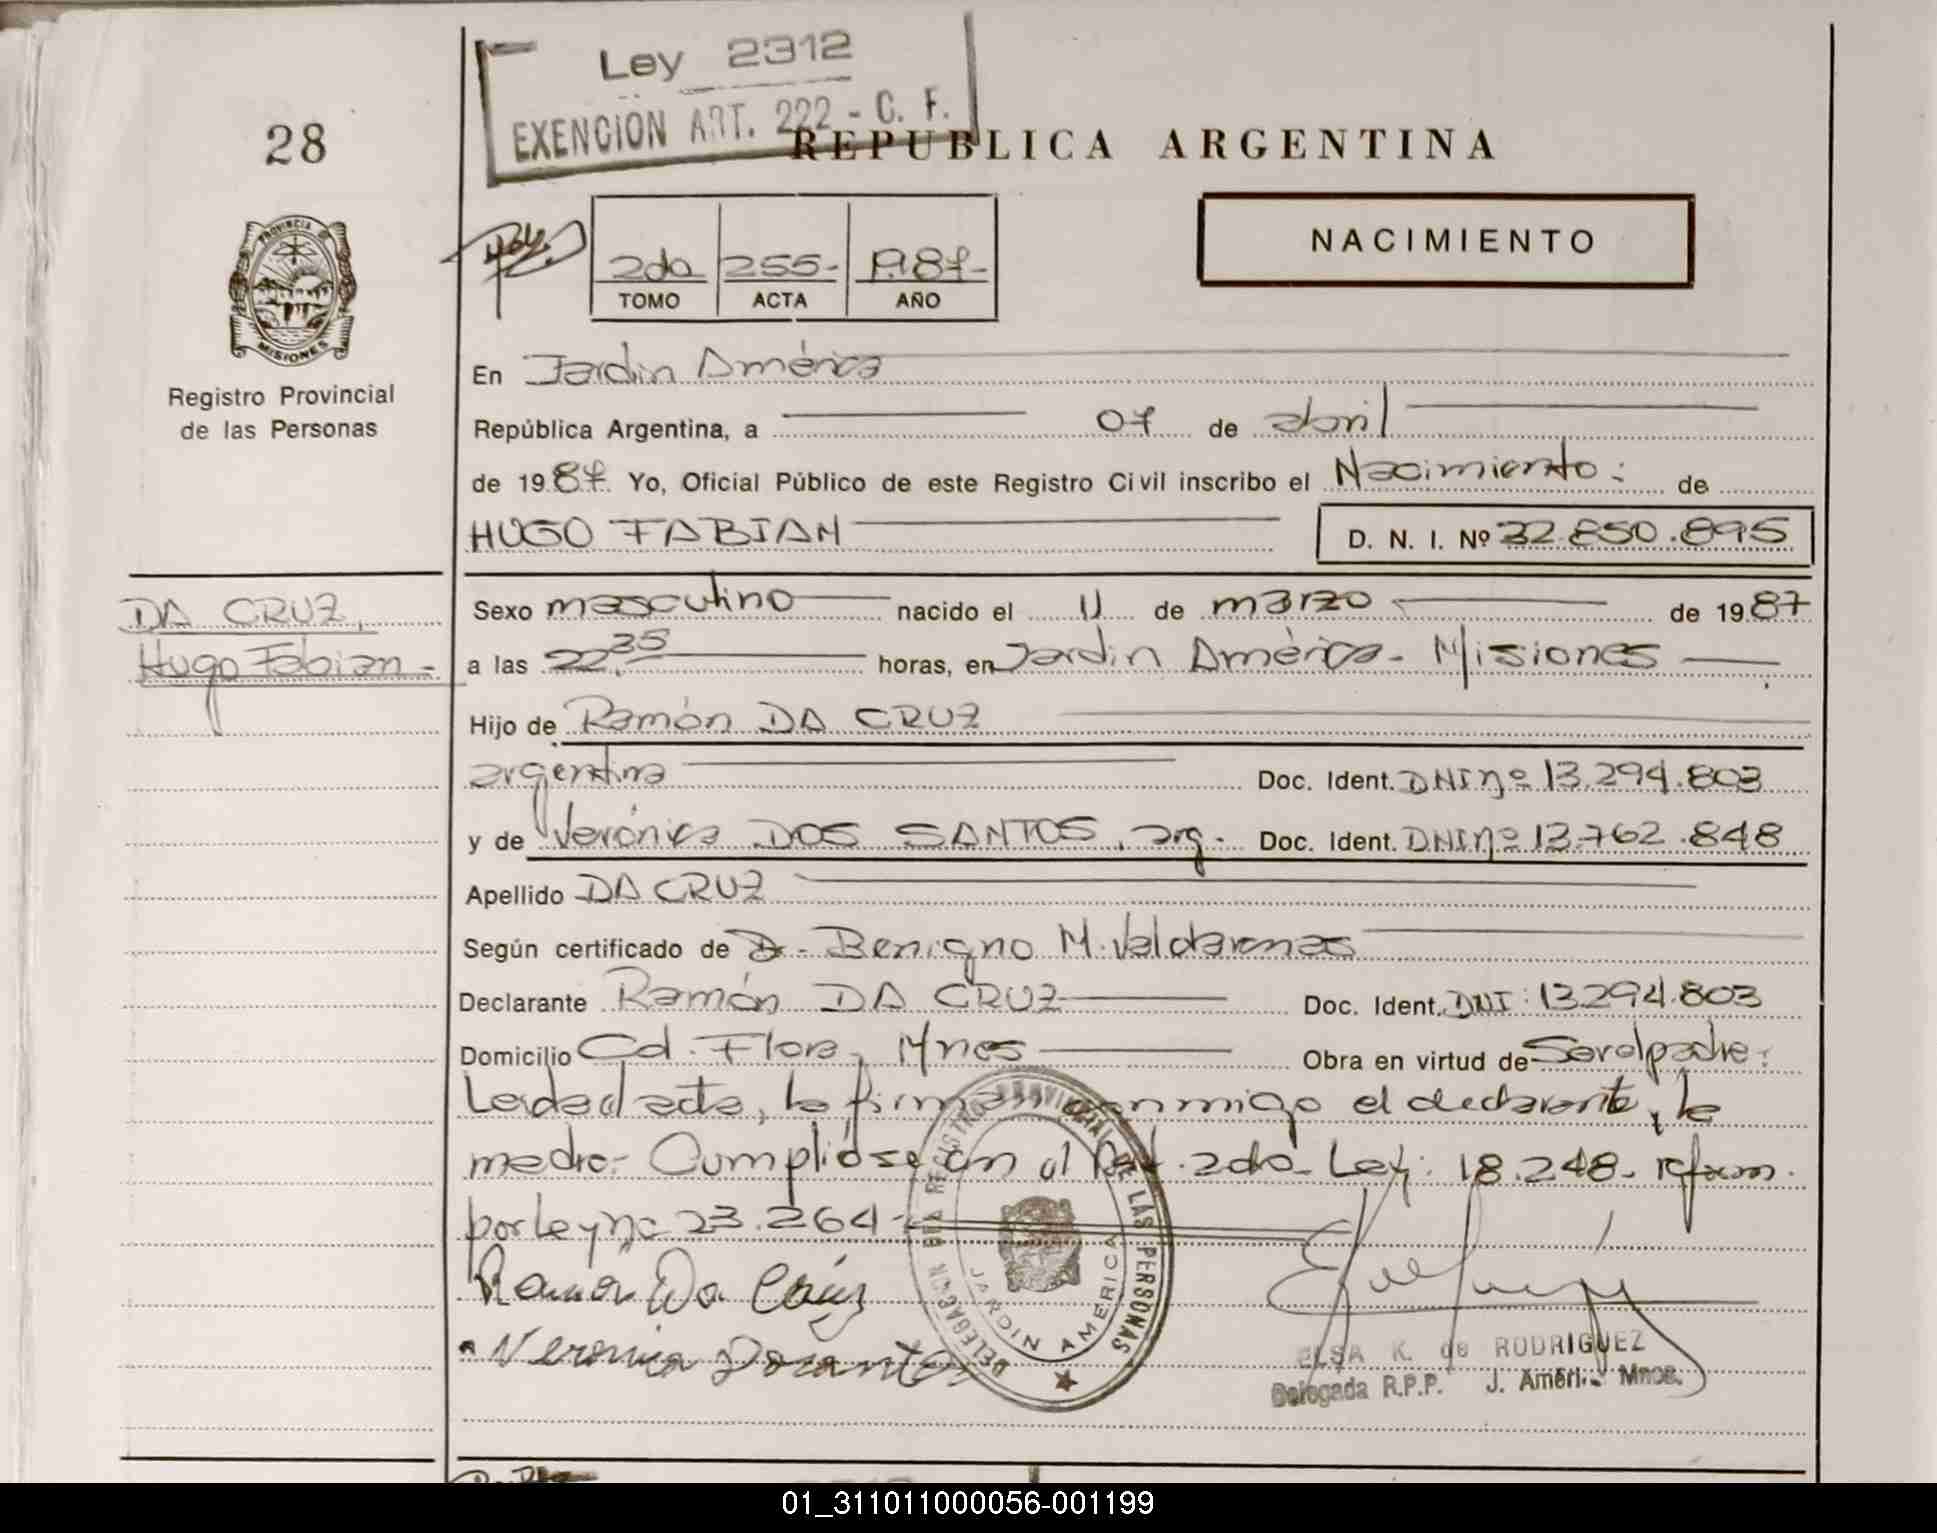 Ley 2312
EXENCION ART. 222 - C. F.
28
REPUBLICA ARGENTINA
PROVINCIA DE
MISIONES
Registro Provincial
de las Personas
2do 255- 1987-
TOMO ACTA AÑO
NACIMIENTO
En Jardin América
República Argentina, a 07 de abril
de 1987. Yo, Oficial Público de este Registro Civil inscribo el Nacimiento: de
HUGO FABIAN D. N. I. Nº 32.850.895
DA CRUZ,
Hugo Fabian-
Sexo masculino nacido el 11 de marzo de 1987
a las 22,35 horas, en Jardin América- Misiones
Hijo de Ramón DA CRUZ
argentina Doc. Ident. DNI nº 13.294.803
y de Verónica DOS SANTOS, arg. Doc. Ident. DNI nº 13.762.848
Apellido DA CRUZ
Según certificado de Dr. Benigno M. Valdarenas
Declarante Ramón DA CRUZ Doc. Ident. DNI: 13.294.803
Domicilio Cd. Flora, Mnes Obra en virtud de Ser el padre.
Leida el acta, la firman conmigo el declarante, la
madre- Cumplióse con el Art. 2do- Ley: 18.248- reform.
por Ley nº 23.264-
Ramón Da Cruz
Veronica Dosantos
DELEGACION DEL REGISTRO PROVINCIAL DE LAS PERSONAS
JARDIN AMERICA
ELSA K. de RODRIGUEZ
Delegada R.P.P. J. Améri. Mnes.
01_311011000056-001199